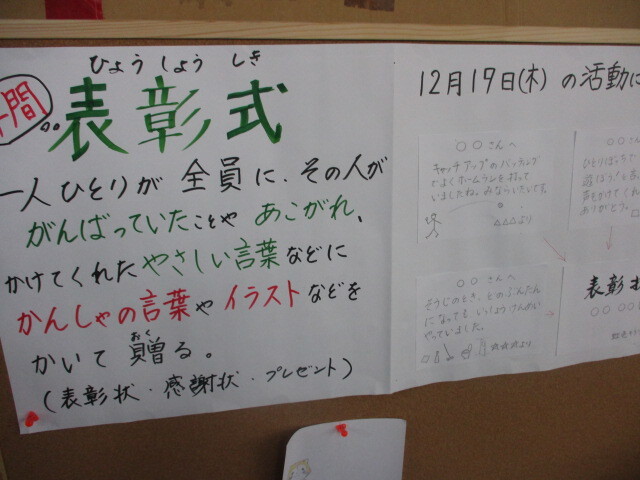 間
ひょうしょう しき
表彰式
一人ひとりが 全員に、その人が
がんばっていたことや あこがれ、
かけてくれた やさしい言葉などに
かんしゃの言葉や イラストなどを
おく
かいて 贈る。
(表彰状・感謝状・プレゼント)
12月19日(木) の活動に
○○さんへ
キャッチアップのバッティング
でよくホームランを打って
いましたね。みならいたいです。
△△△より
○○さ
ひとりぼっちで
声をかけてくれ
ありがとう。
○○さんへ
そうじのとき、どのぶんたん
になっても いっしょうけんめい
やっていました。
☆☆☆より
表彰状
○○○